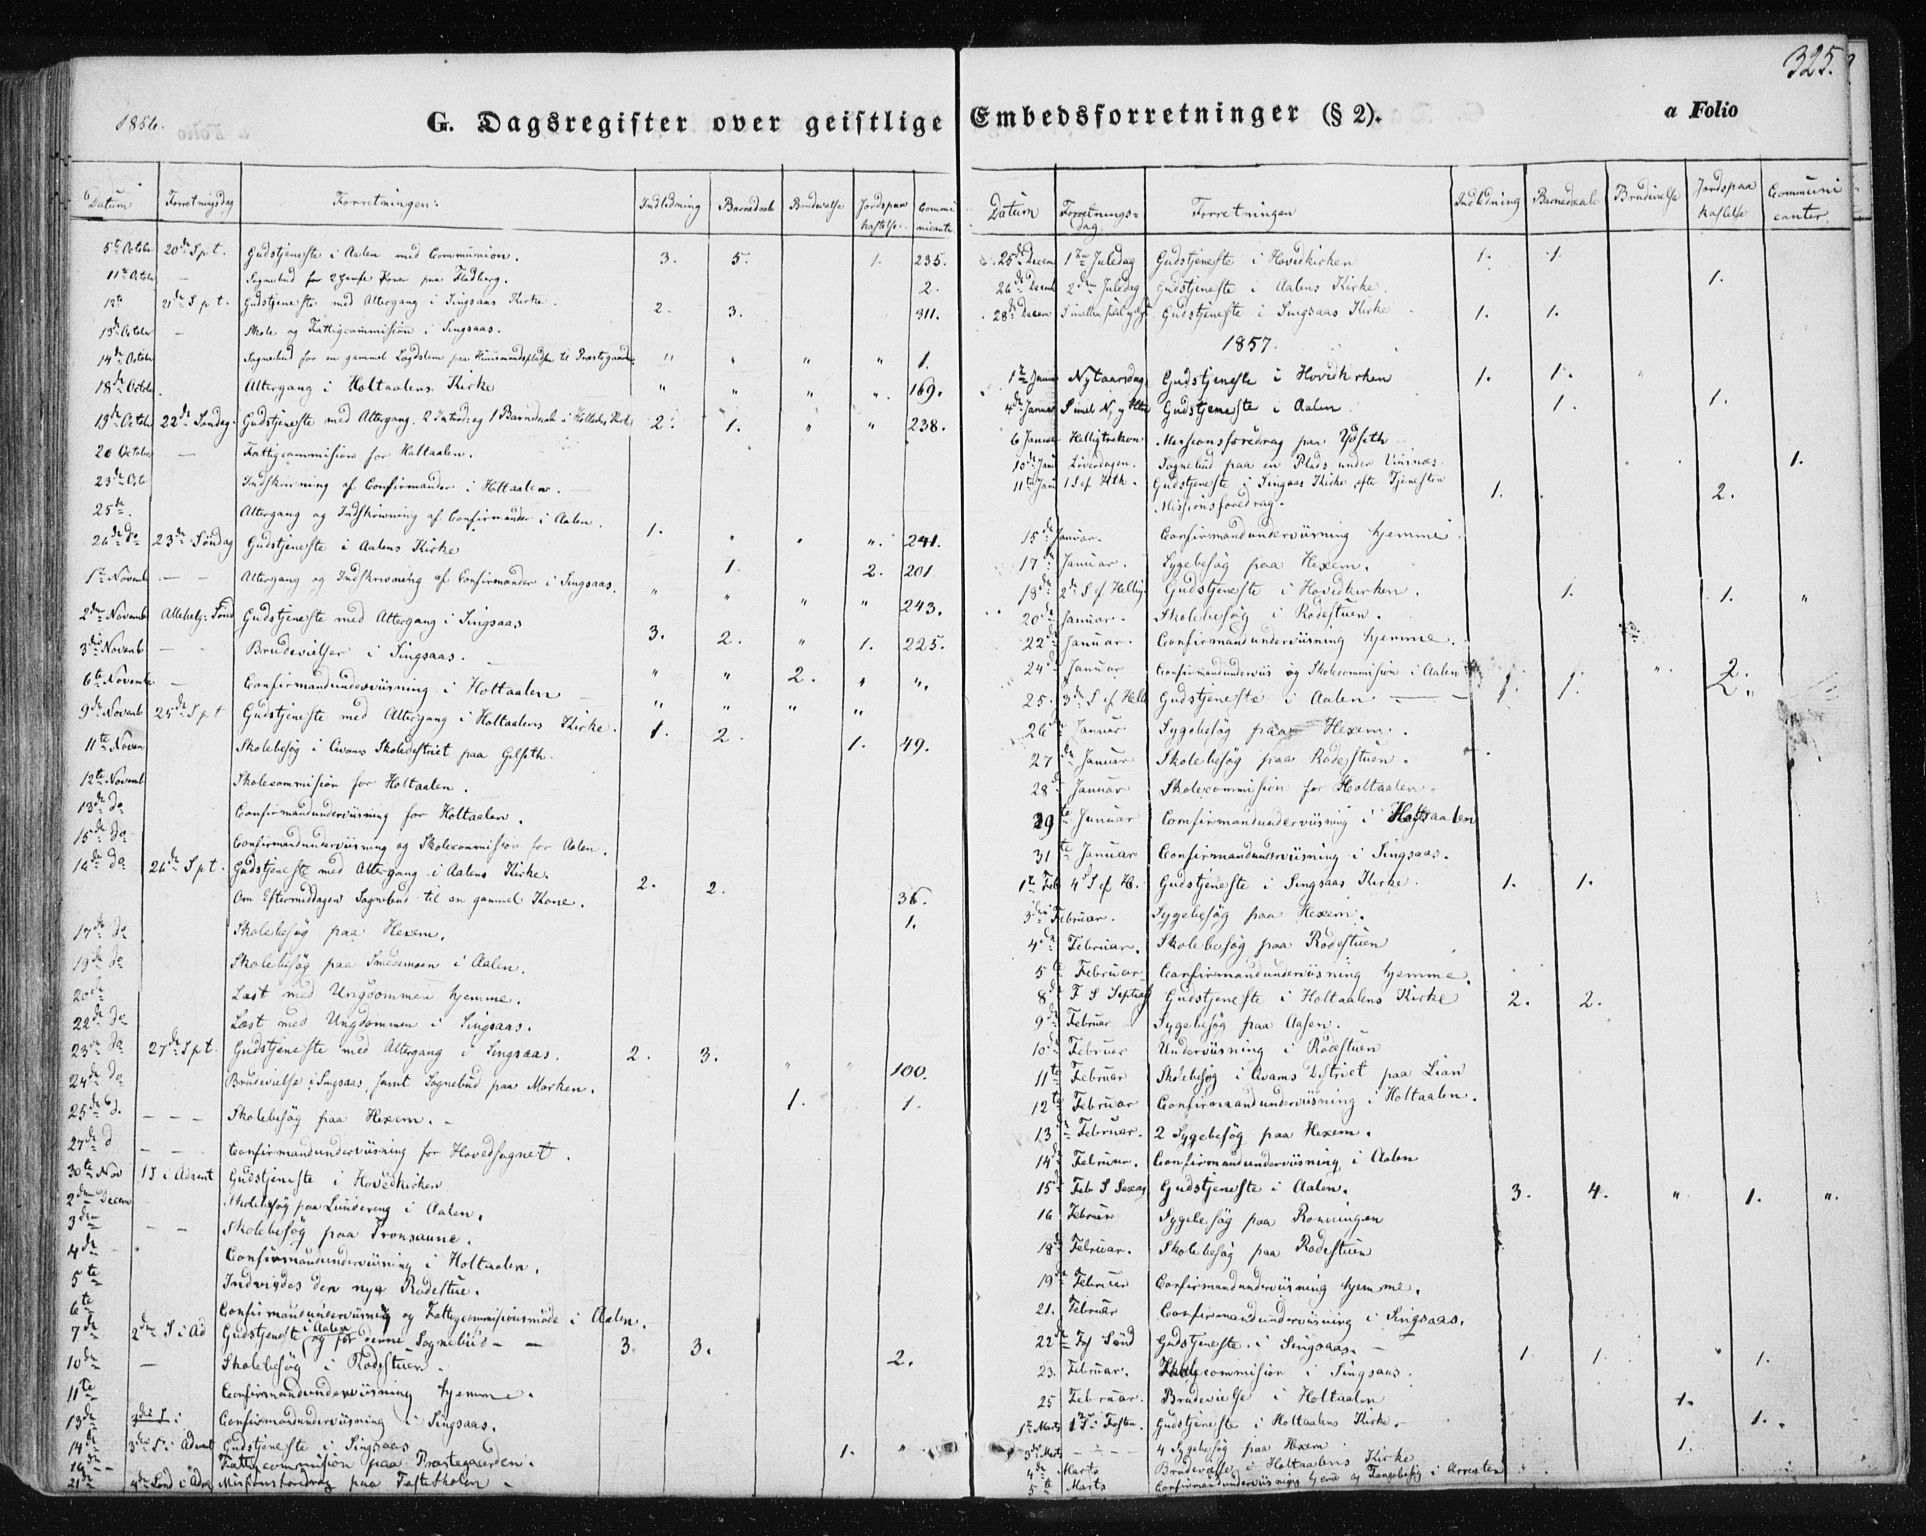 325.
1856.
G. Dagsregister over geistlige Embedsforretninger (§ 2).
a Folio
Datum Forretningsdag Forretningen: Indledning Barnedaab Brudevielse Jordspaakastelse. Communicanter.
5te October 20de S p t. Gudstjeneste i Aalen med Communion. 3. 5. 1. 235.
11te Octob Sognebud for 2 Koner paa Fladberg. 2.
12te 21de S p t. Gudstjeneste med Altergang i Singsaas Kirke. 2. 3. 311.
13de October — Skole og Fattigcommision i Singsaas.
14de October Sognebud for en gammel paa Huusmandspladsen til Præstegaarden " " " " 1.
18de Octob Altergang i Holtaalens Kirke " " " " 169.
19de Octob 22de Søndag. Gudstjeneste med Altergang. 2 Introd. og 1 Barnedaab i Kirke 2. 1. " " 238.
20 October — Fattigcommision for Holtaalen.
23de Oct Indskrivning af Confirmander i Holtaalen.
25de. Altergang og Indskrivning af Confirmander i Aalen. 1. " " " 241.
26de do 23de Søndag Gudstjeneste i Aalens Kirke 1. 2. 201
1te Novemb — — Altergang og Indskrivning af Confirmander i Singsaas. " " " " 243.
2den Novemb Allehelg: Sønd Gudstjeneste med Altergang i Singsaas 3. 2. " 1. 225.
3die Novemb — — Brudevielser i Singsaas. " " 2. " ".
6te Novemb — Confirmandunderviisning i Holtaalen " " " "
9de Novemb 25de S p t Gudstjeneste med Altergang i Holtaalens Kirke. 1. 2. 1. 49.
11te Novem Skolebesøg i Avams Skoledistrict paa Gilseth.
12te Novemb Skolecommision for Holtaalen.
13de do Confirmandunderviisning for Holtaalen.
15de do Confirmandunderviisning og Skolecommision for Aalen.
16de do 26de S p t. Gudstjeneste med Altergang i Aalens Kirke. 2. 2. 36.
Om Eftermiddagen Sognebud til en gammel Kone. 1.
17de do Skolebesøg paa Hexem.
19de do Skolebesøg paa Smedemoen i Aalen.
20de Læst med Ungdommen hjemme.
22de do Læst med Ungdommen i Singsaas.
23de do 27de S p t. Gudstjeneste med Altergang i Singsaas. 2. 3. " " 100.
24de do Brudevielse i Singsaas, samt Sognebud paa Morken. 1. 1.
25de d. — — — Skolebesøg paa Hexem. —
27de d — — Confirmandunderviisning for Hovedsognet.
30te Nov 1 S i Advent Gudstjeneste i Hovedkirken
2den Decem Skolebesøg paa Lundereng i Aalen.
3die — — Skolebesøg paa Tronsaune.
4de — Confirmandunderviisning i Holtaalen.
5te Indviedes den nye Rodestue.
6te Confirmandunderviisning og Fattigcommisionsmøde i Aalen.
7de 2den S i Ad Gudstjeneste i Aalen og før denne Sognebud — — 3. 3. 2.
10de — Skolebesøg i Rodestuen.
11te Confirmandunderviisning hjemme.
13de 3die S i Confirmandunderviisning i Singsaas.
14de 3die S i Advent Gudstjeneste i Singsaas 1. "
19de — — Fattigcommision paa Præstegaarden.
21de 4de Sønd i Adv Misionsforedrag paa Fasteskolen.
Datum Forretningsdag. Forretningen Indledning Barnedaab Brudevielse Jordspaakastelse Communicanter.
25de Decem 1ste Juledag Gudstjeneste i Hovedkirken 1. 1.
26de Decemb 2den Juledag Gudstjeneste i Aalens Kirke. 1.
28de Decem S mellem Juul og Nyt Gudstjeneste i Singsaas Kirke 1. 1.
1857.
1te Januar Nytaarsdag Gudstjeneste i Hovedkirken 1. 1. "
4de Januar S imel N og Hltr Gudstjeneste i Aalen 1. 1.
6 Januar Helligtrekon Missionsforedrag paa Ydseth
10de Janu Løverdagen. Sognebud paa en Plads under Viisnæs. 1.
11te Janu 1 S ef Htk. Gudstjeneste i Singsaas Kirke efter Tjenesten 1. 2.
Missionsforedrag.
15de Januar. Confirmandunderviisning hjemme.
17de Januar. Sygebesøg paa Hexem.
18de 2de S ef Hellig Gudstjeneste i Hovedkirken. 1. 1. "
20de Januar. Skolebesøg i Rodestuen.
22de Januar. Confirmandunderviisning hjemme.
24de Januar Confirmandunderviis og Skolecommision i Aalen 1. 1. " 2.
25. 3de S ef Hell Gudstjeneste i Aalen — — 1. 1. 2.
26de Januar Sygebesøg paa Hexem.
27de Januar Skolebesøg paa Rodestuen.
28de Januar Skolecommision for Holtaalen.
29te Januar Confirmandunderviisning i Holtaalen
31te Januar Confirmandunderviisning i Singsaas.
1te Feb 4 S ef H. Gudstjeneste i Singsaas Kirke. 1. 1.
3die Februar. Sygebesøg paa Hexem.
4de Februar. Skolebesøg paa Rodestuen
5te Februar Confirmandunderviisning hjemme.
8de F S Septuag Gudstjeneste i Holtaalens Kirke 2. 2.
9de Februar Sygebesøg paa Aasen.
10de Februar Underviisning i Rodestuen
11te Februar Skolebesøg i Avams District paa Lian
12te Februar Confirmaandunderviisning i Holtaalen.
13de Februar. 2 Sygebesøg paa Hexem.
14de Februar. Confirmandunderviisning i Aalen
15de Feb S Sexag Gudstjeneste i Aalen. 3. 4. " 1. ".
16 Februar Sygebesøg paa Ronningen
18de Februar. Skolebesøg paa Rodestuen
19de Februar Confirmandunderviisning hjemme.
21. Februar Confirmandunderviisning i Singsaas.
22de Fas Sønd Gudstjeneste i Singsaas. — 1. 1. " 1.
23. Februar. commision i Singsaas.
25 Februar. Brudevielse i Holtaalen 1.
1te Marts 1 S i Fasten Gudstjeneste i Holtaalens Kirke. 1.
3die Marts — — — 4 Sygebesøg paa Hexem. 1.
4de Marts Brudevielse i Holtaalens Kirke
5te Marts Confirmandunderviisning hjeme og Fangebesøg i Arresten